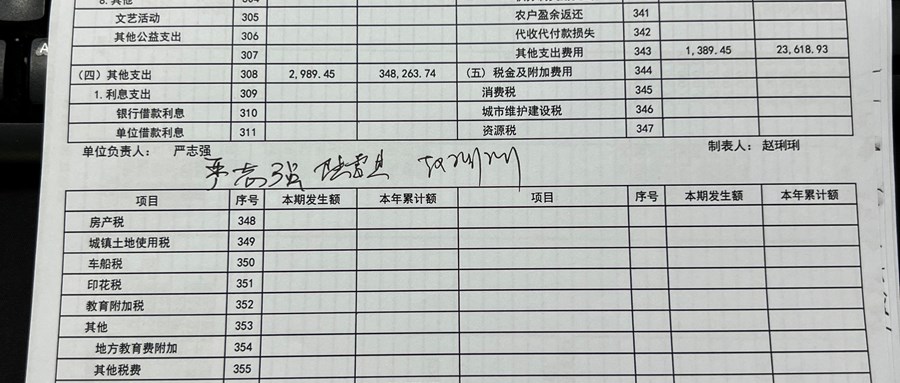 8.其他 304
文艺活动 305 农户盈余返还 341
其他公益支出 306 代收代付款损失 342
307 其他支出费用 343 1,389.45 23,618.93
(四)其他支出 308 2,989.45 348,263.74 (五)税金及附加费用 344
1.利息支出 309 消费税 345
银行借款利息 310 城市维护建设税 346
单位借款利息 311 资源税 347
单位负责人: 严志强 制表人: 赵琍琍
严志强
项目 序号 本期发生额 本年累计额 项目 序号 本期发生额 本年累计额
房产税 348
城镇土地使用税 349
车船税 350
印花税 351
教育附加税 352
其他 353
地方教育费附加 354
其他税费 355